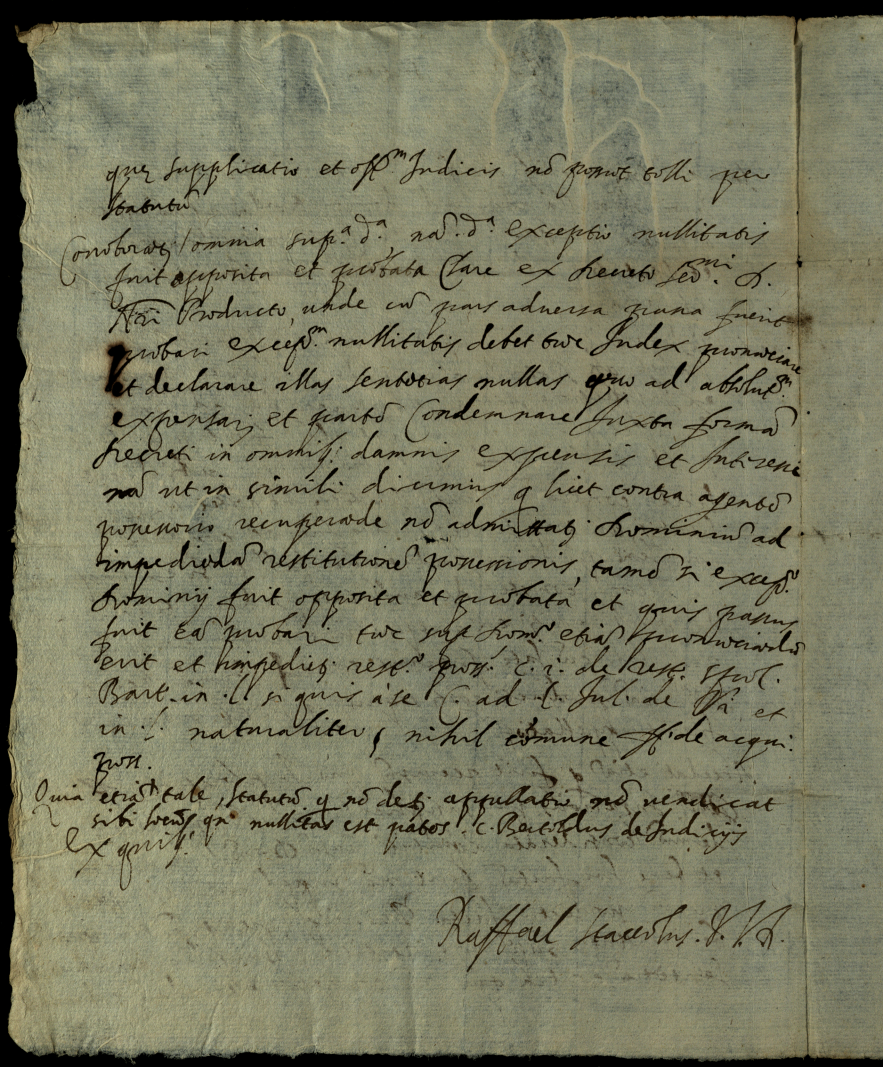 quę supplicatio et offm Iudicis nō possōt tolli per
statutū
Conoborātj omnia supa. da, nā. da exceptio nullitatis
fuit opposita et probata Clare ex decreto Sermi. D.
Nri Producto, unde cū pars adversa passa fuerit
probari excepm. nullitatis debet tūc Iudex pronūciare
et declarare illas sentētias nullas quo ad absolutm.
expensarj et partē Condemnare Iuxta formā
decreti in omnibj damnis expensis et Interesse
nā ut in simili dicimus q licet contra agentē
possessorio recuperāde nō admittatj dominiū ad
impediēdā restitutionē possessionis, tamē si excepo.
dominij fuit opposita et probata et quis passus
fuit eā probari tūc sup domo. etiā pronūciandū
erit et impedietj resto. poss. C. 1. de rest. spol.
Bart. in .l. si quis à se C. ad l. Iul. de va et
in .l. naturaliter § nihil comune ff. de acqui.
poss.
Quia etiā tale statutū q nō detj appellatio nō vendicat
sibi locū qn nullitas est patēs. c. Bertoldus de Iudicijs
Ex quibj
Raffael Staccolus. J. V. D.